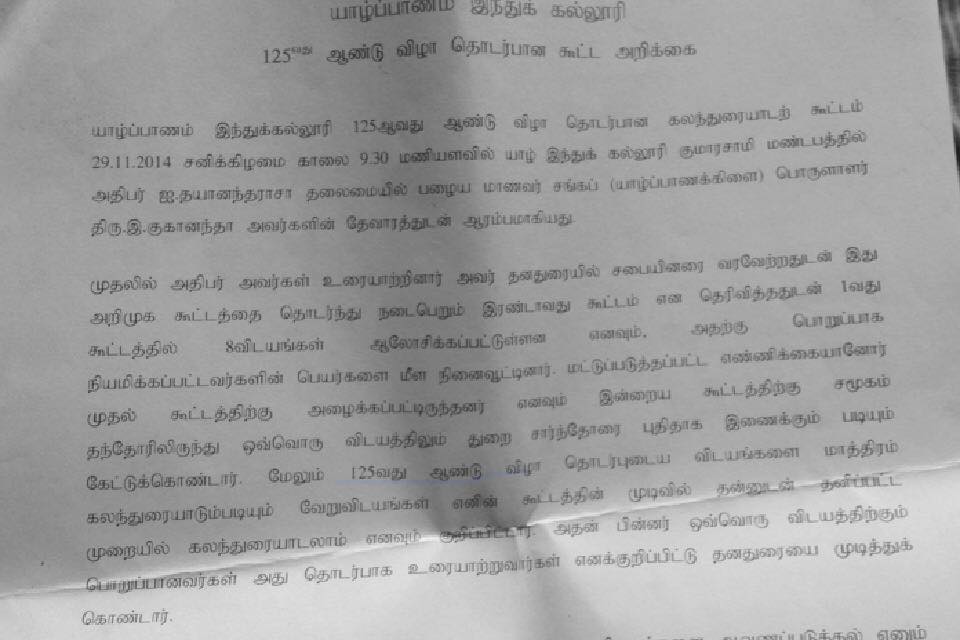 யாழ்ப்பாணம் இந்துக் கல்லூரி
125வது ஆண்டு விழா தொடர்பான கூட்ட அறிக்கை
யாழ்ப்பாணம் இந்துக்கல்லூரி 125ஆவது ஆண்டு விழா தொடர்பான கலந்துரையாடற் கூட்டம்
29.11.2014 சனிக்கிழமை காலை 9.30 மணியளவில் யாழ் இந்துக் கல்லூரி குமாரசாமி மண்டபத்தில்
அதிபர் ஐ.தயானந்தராசா தலைமையில் பழைய மாணவர் சங்கப் (யாழ்ப்பாணக்கிளை) பொருளாளர்
திரு.இ.குகானந்தா அவர்களின் தேவாரத்துடன் ஆரம்பமாகியது.
முதலில் அதிபர் அவர்கள் உரையாற்றினார் அவர் தனதுரையில் சபையினரை வரவேற்றதுடன் இது
அறிமுக கூட்டத்தை தொடர்ந்து நடைபெறும் இரண்டாவது கூட்டம் என தெரிவித்ததுடன் 1வது
கூட்டத்தில் 8விடயங்கள் ஆலோசிக்கப்பட்டுள்ளன எனவும், அதற்கு பொறுப்பாக
நியமிக்கப்பட்டவர்களின் பெயர்களை மீள நினைவூட்டினார். மட்டுப்படுத்தப்பட்ட எண்ணிக்கையானோர்
முதல் கூட்டத்திற்கு அழைக்கப்பட்டிருந்தனர் எனவும் இன்றைய கூட்டத்திற்கு சமூகம்
தந்தோரிலிருந்து ஒவ்வொரு விடயத்திலும் துறை சார்ந்தோரை புதிதாக இணைக்கும் படியும்
கேட்டுக்கொண்டார். மேலும் 125வது ஆண்டு விழா தொடர்புடைய விடயங்களை மாத்திரம்
கலந்துரையாடும்படியும் வேறுவிடயங்கள் எனின் கூட்டத்தின் முடிவில் தன்னுடன் தனிப்பட்ட
முறையில் கலந்துரையாடலாம் எனவும் குறிப்பிட்டார் அதன் பின்னர் ஒவ்வொரு விடயத்திற்கும்
பொறுப்பானவர்கள் அது தொடர்பாக உரையாற்றுவார்கள் எனக்குறிப்பிட்டு தனதுரையை முடித்துக்
கொண்டார்.
எனும்